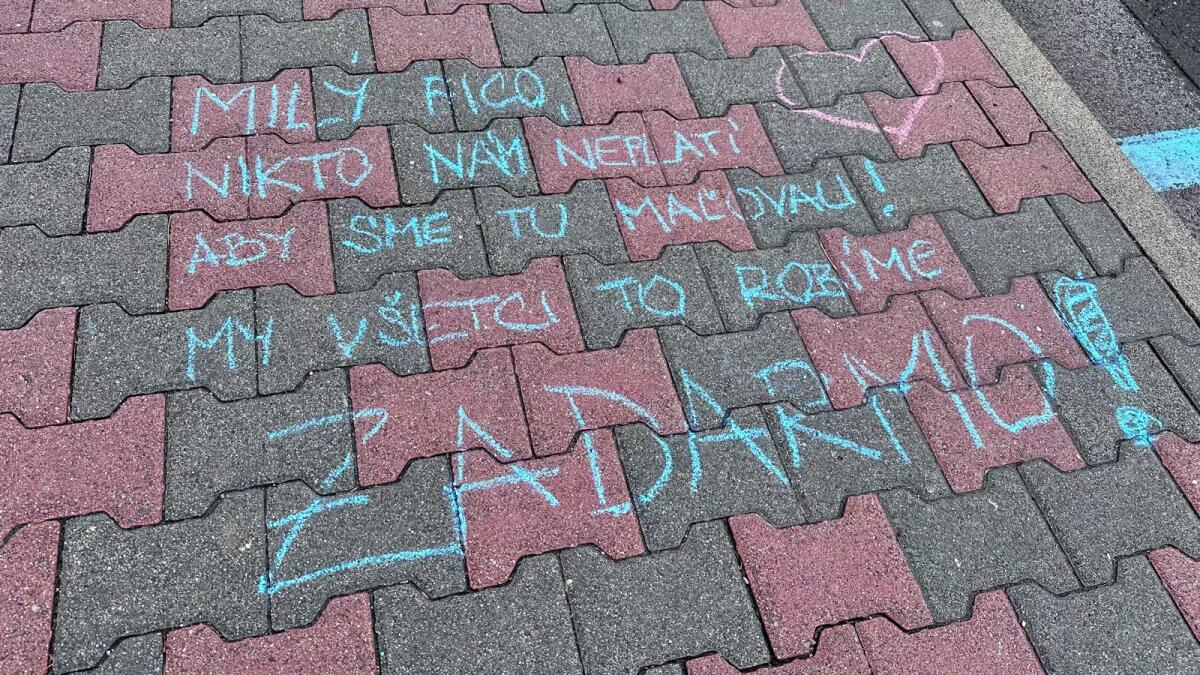 MILÝ FICO,
NIKTO NÁM NEPLATÍ
ABY SME TU MAĽOVALI!
MY VŠETCI TO ROBÍME
ZADARMO!